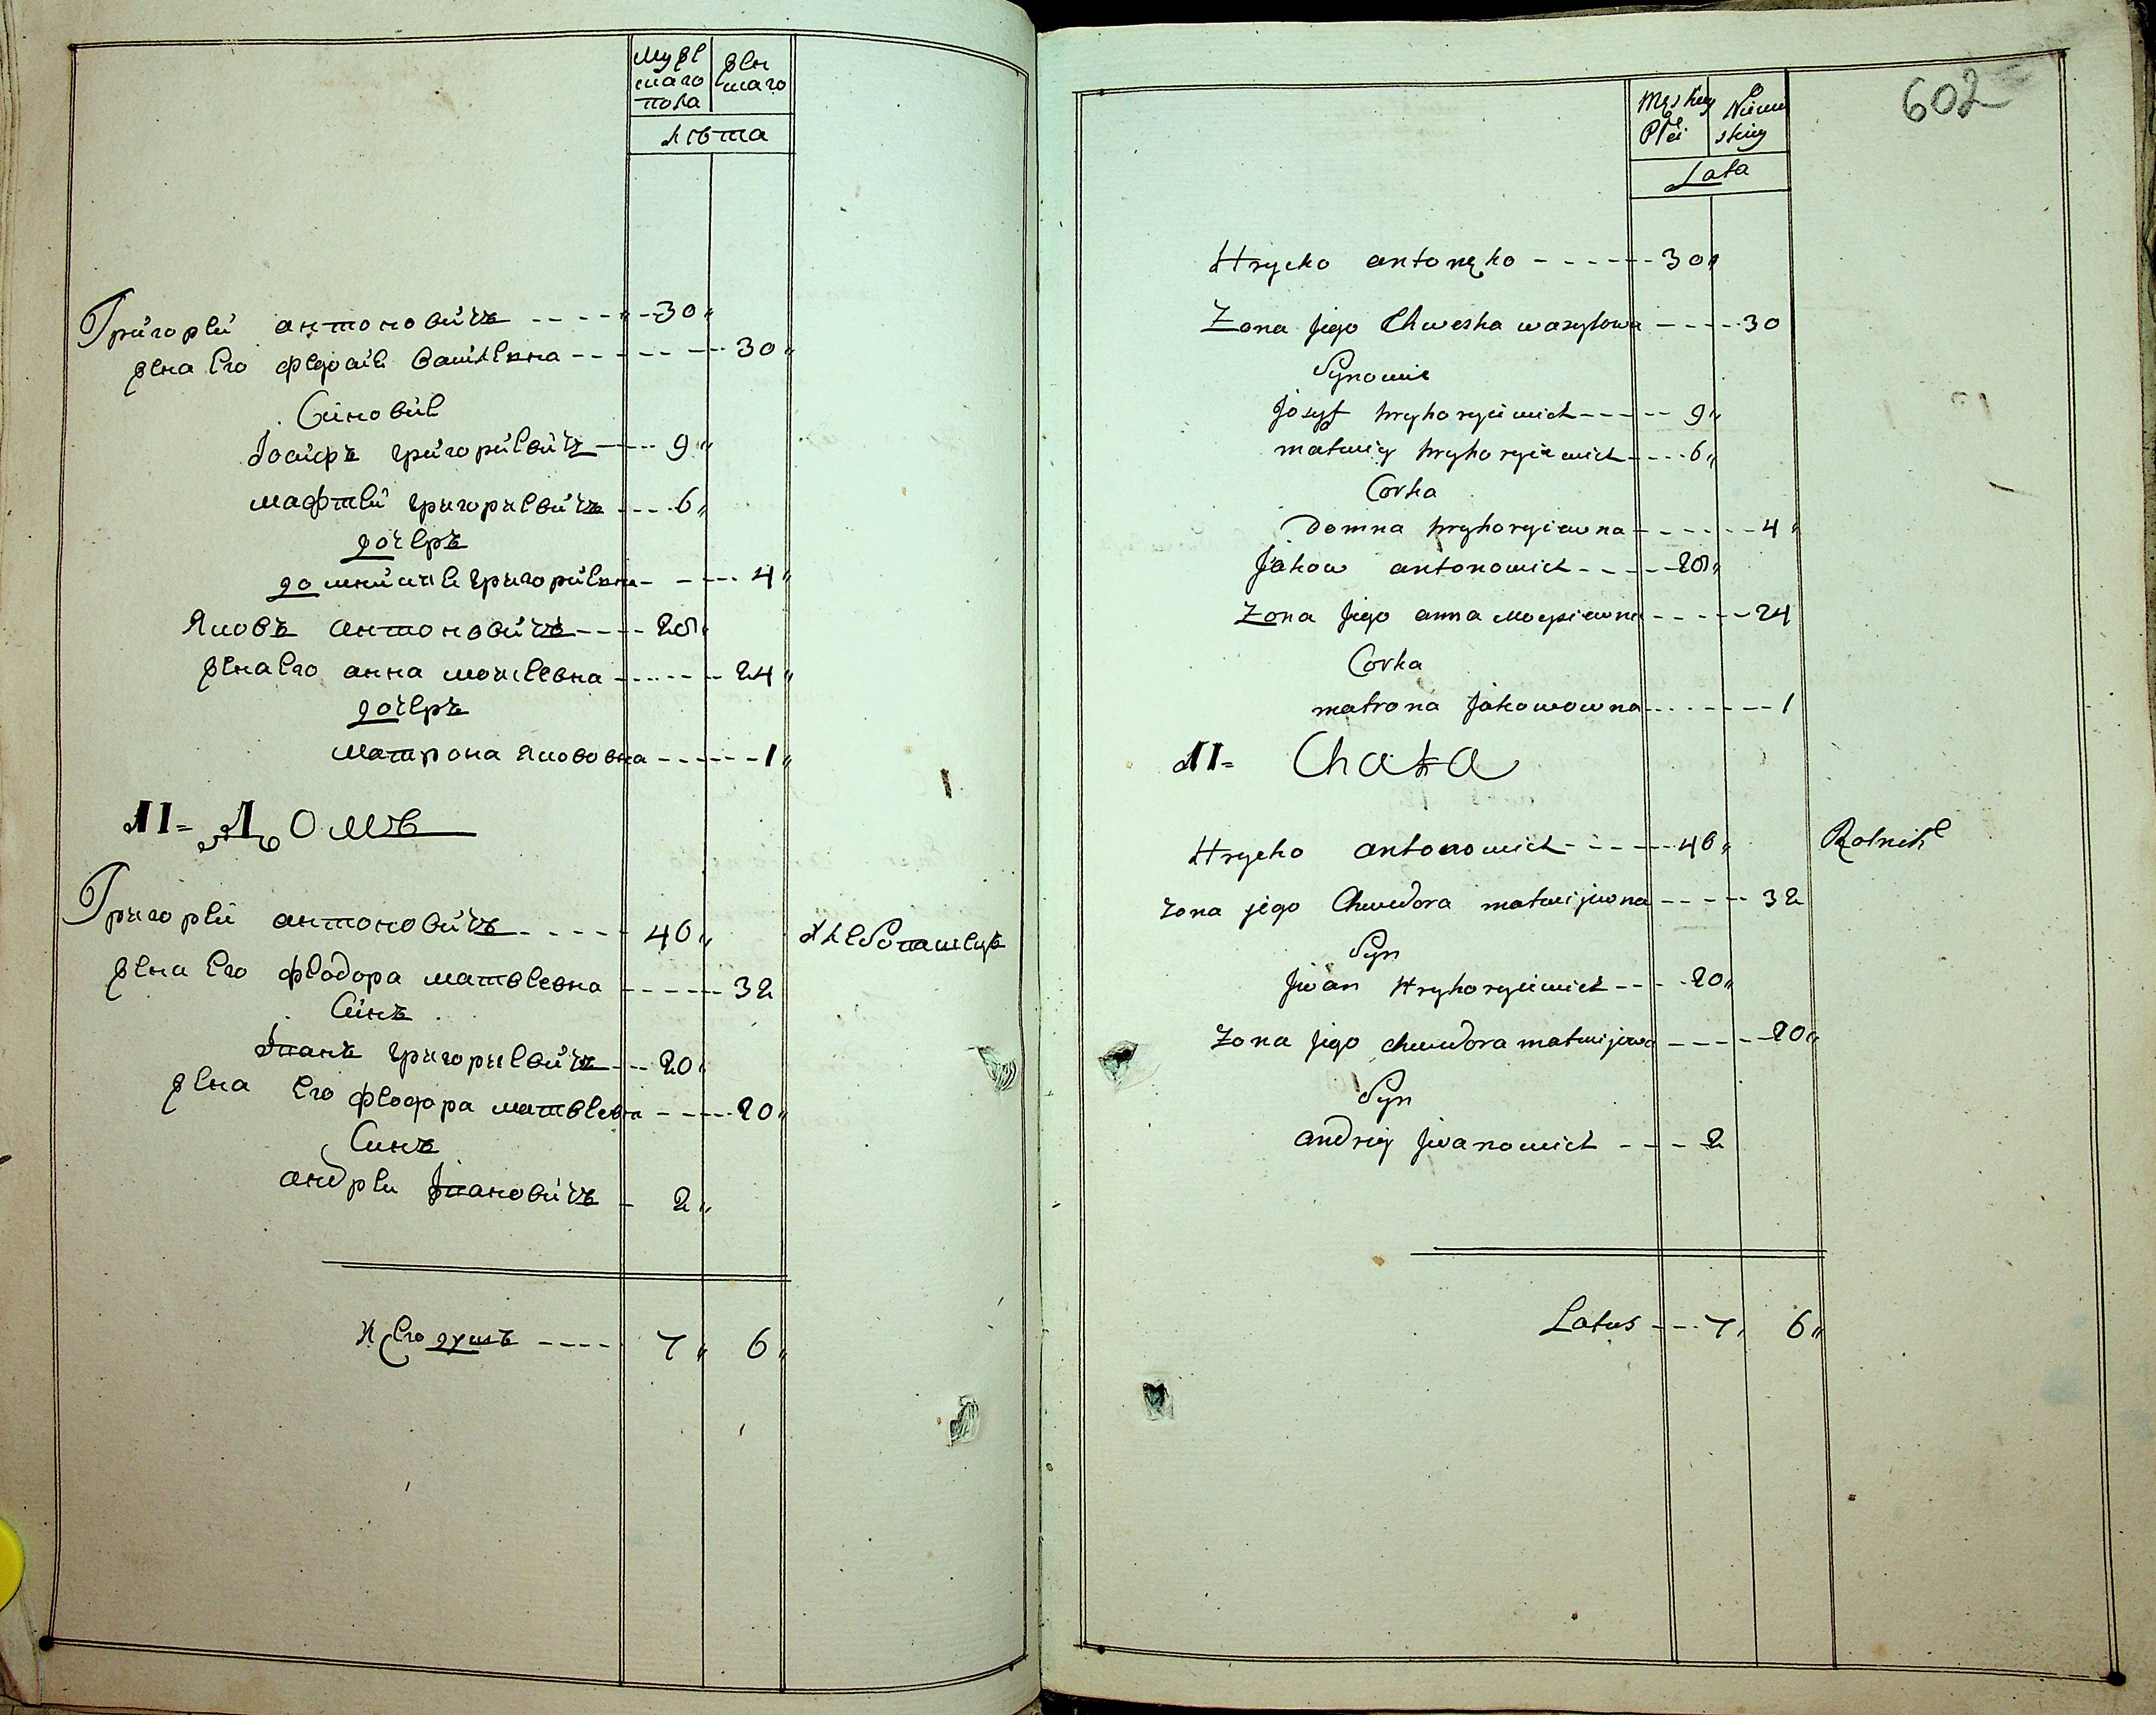 Мужескаго пола
Женскаго
Лѣта
Григорей антоновичъ 30
жена Его федосия Василевна 30
Синовіе
Іосифъ григориевичъ 9
мафтей григориевичъ 6
дочеръ
домникия григориевна 4
Яковъ антоновичъ 28
жена Его анна моисеевна 24
дочеръ
Матрона Якововна 1
II= Домъ
Григорей антоновичъ 46
жена Его феодора матвеевна 32
Синъ
Іванъ григориевичъ 20
жена Его феодора матвеевна 20
Синъ
андреи Івановичъ 2
душъ 7 6
602
Męskiey Płci
Niewieskiey
Lata
Hrycko antonęko 30
Zona Jego Chweska wasylowa 30
Synowie
Josyf hryhoryiewich 9
matwiy hryhoryiewich 6
Corka
Domna hryhoryiewna 4
Jakow antonowich 28
Zona Jego anna Moysiewna 24
Corka
matrona Jakowowna 1
II= Chata
Hrycko antonowich 46
Rolnik
Zona jego Chwedora matwijewna 32
Syn
Jwan Hryhoryiewich 20
Zona Jego chwedora matwijewa 20
Syn
andriy Jwanowich 2
Latus 7 6